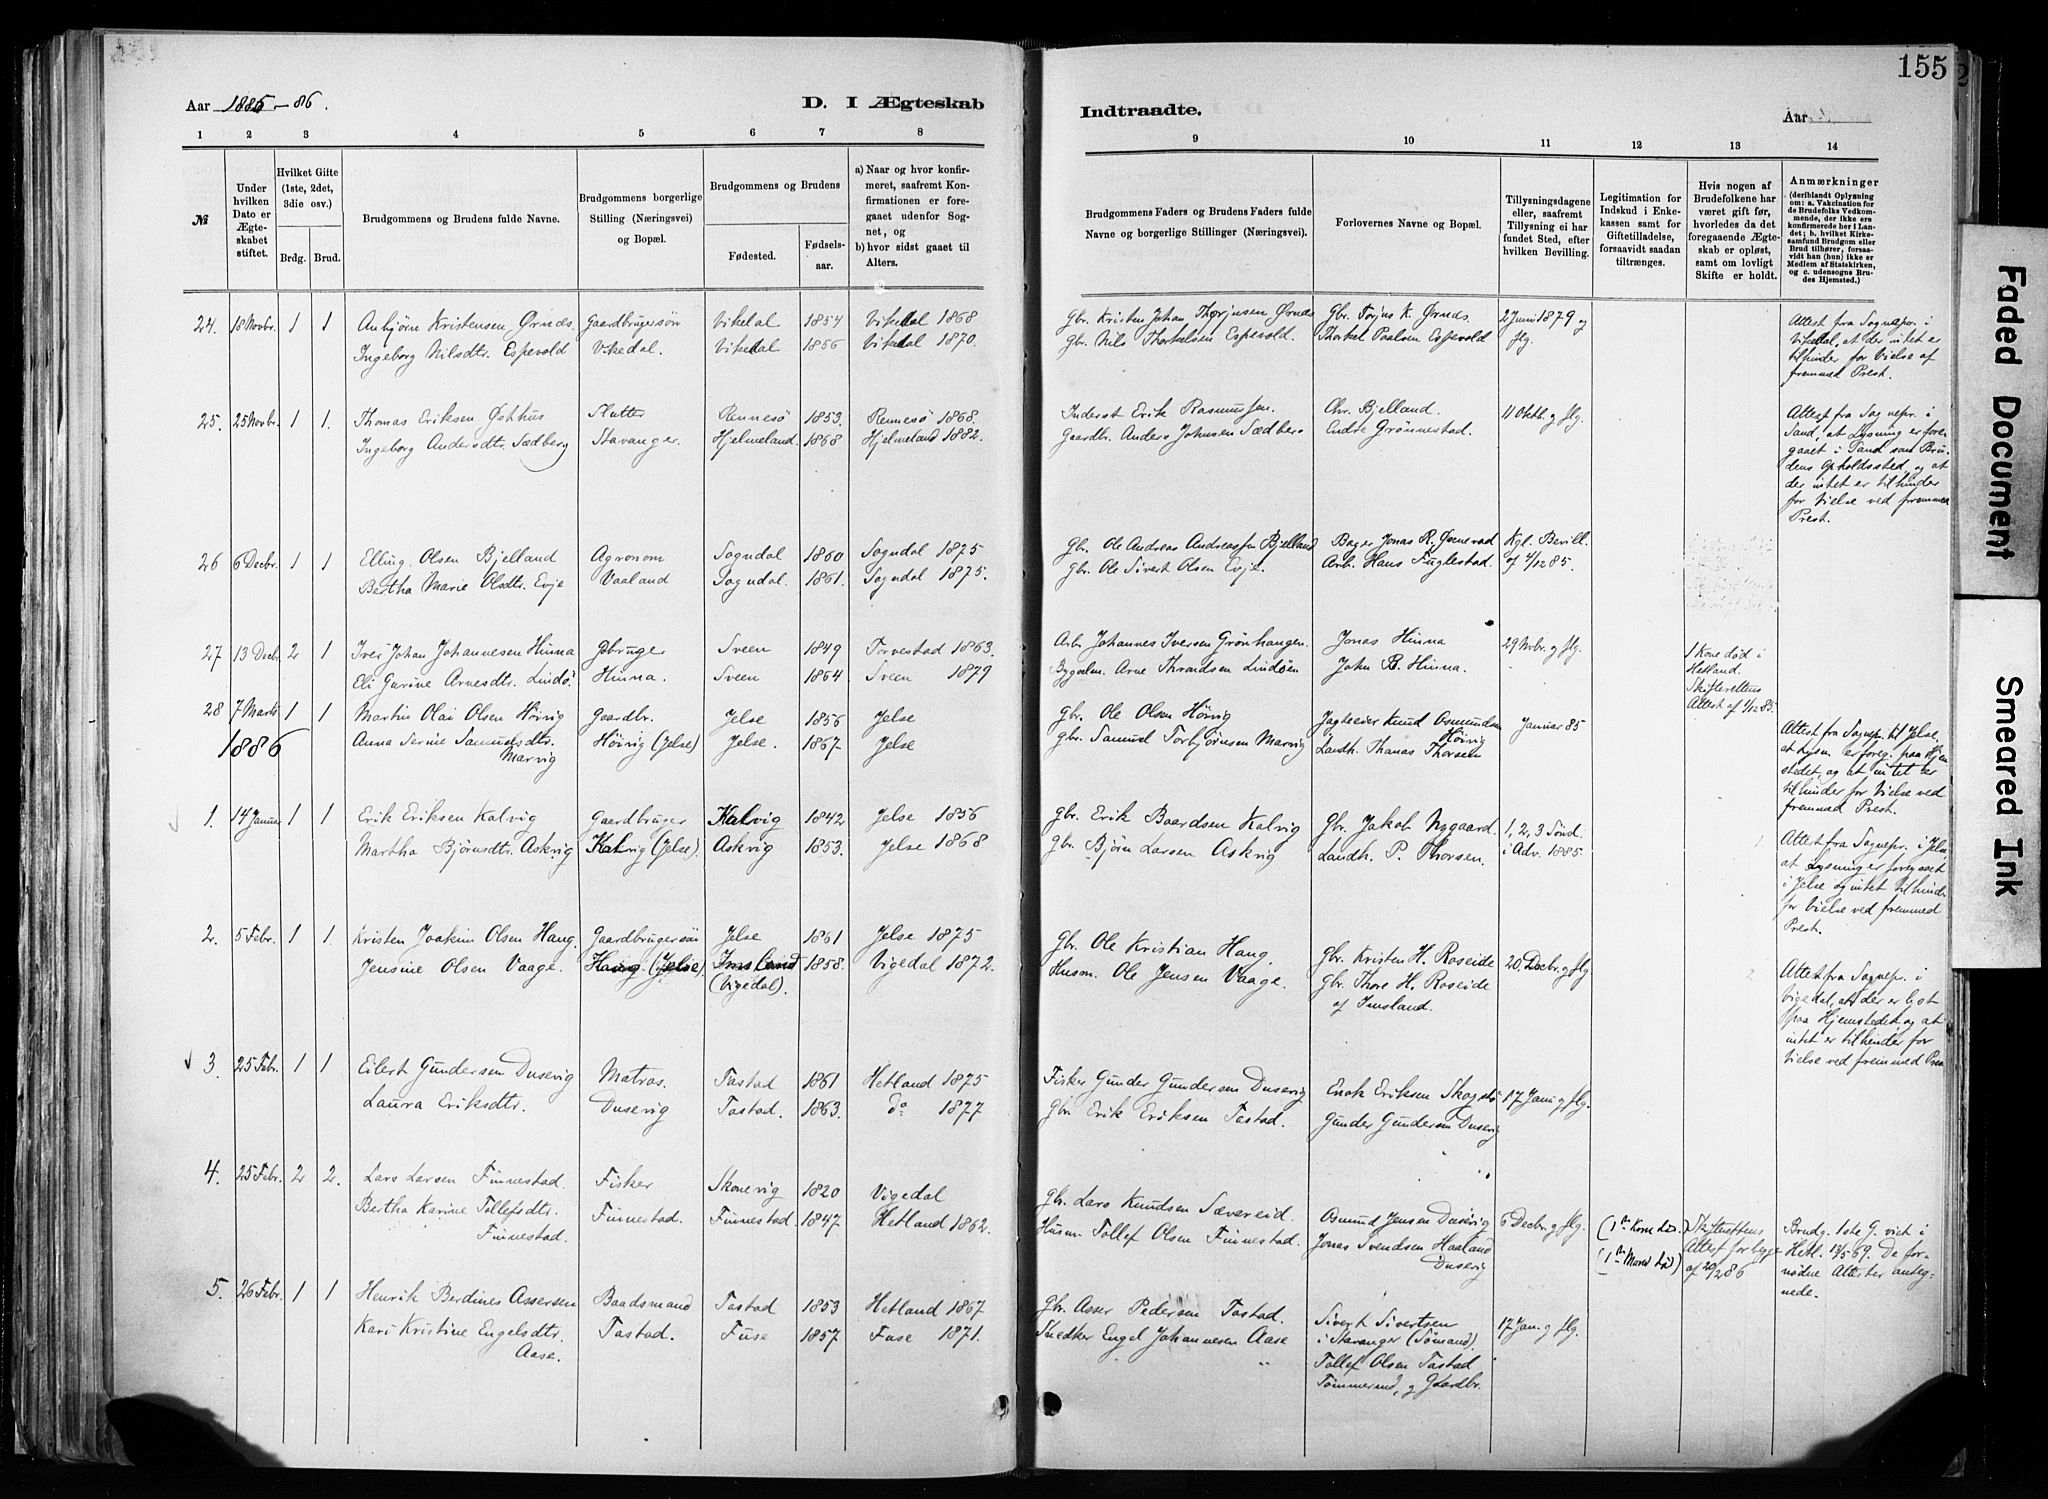 155
Aar 1885-86.
D. I Ægteskab
Indtraadte.
Aar
1 2 3 4 5 6 7 8 9 10 11 12 13 14
№
Under hvilken Dato er Ægteskabet stiftet.
Hvilket Gifte (1ste, 2det, 3die osv.)
Brdg. Brud.
Brudgommens og Brudens fulde Navne.
Brudgommens borgerlige Stilling (Næringsvei) og Bopæl.
Brudgommens og Brudens
Fødested.
Fødselsaar.
a) Naar og hvor konfirmeret, saafremt Konfirmationen er foregaaet udenfor Sognet, og
b) hvor sidst gaaet til Alters.
Brudgommens Faders og Brudens Faders fulde Navne og borgerlige Stillinger (Næringsvei).
Forlovernes Navne og Bopæl.
Tillysningsdagene eller, saafremt Tillysning ei har fundet Sted, efter hvilken Bevilling.
Legitimation for Indskud i Enkekassen samt for Giftetilladelse, forsaavidt saadan tiltrænges.
Hvis nogen af Brudefolkene har været gift før, hvorledes da det foregaaende Ægteskab er opløst, samt om lovligt Skifte er holdt.
Anmærkninger
(deriblandt Oplysning om: a. Vakcination for de Brudefolks Vedkommende, der ikke ere konfirmerede her i Landet; b. hvilket Kirkesamfund Brudgom eller Brud tilhører, forsaavidt han (hun) ikke er Medlem af Statskirken, og c. udensogns Brudes Hjemsted.)
24. 18 Novbr. 1 1 Anbjörn Kristensen Örnes Gaardbrugersön Vikedal 1854 Vikedal 1868
Ingeborg Nilsdtr. Espevold Vikedal. Vikedal 1856 Vikedal 1870.
Gbr. Kristen Johan Thorjusen Örnes Gbr. Torjus K. Örnes. 2 Juni 1879 og
Gbr. Nils Thorkelsen Espevold. Thorkel Paalsen Espevold flg.
Attest fra Sognepr. i
Vikedal, at der intet er
tilhinder for Vielse af
fremmed Prest.
25. 25 Novbr. 1 1. Thomas Eriksen Östhus Slutter Rennesö 1853. Rennesö 1868.
Ingeborg Andersdtr. Sædberg Stavanger. Hjelmeland 1868 Hjelmeland 1882.
Inderst Erik Rasmussen. Chr. Bjelland. 11 Oktb. og flg.
Gaardbr. Anders Johnsen Sædberg Endre Grönnestad.
Attest fra Sognepr. i
Sand, at Lysning er fore-
gaaet i Sand som Bru-
dens Opholdssted, og at
der intet er tilhinder
for Vielse ved fremmed
Prest.
26 6 Decbr. 1 1 Elling Olsen Bjelland Agronom Sogndal 1860 Sogndal 1875
Bertha Marie Olsdtr. Evje Vaaland Sogndal. 1861. Sogndal 1875.
Gbr. Ole Andreas Andreassen Bjelland Bager Jonas R. Gvenerad Kgl. Bevill.
Gbr. Ole Sivert Olsen Evje. Arb. Hans Fuglestad. af 4/12 85.
27 13 Decbr. 2 1 Iver Johan Johannesen Hinna Gbruger Sveen 1849 Torvestad 1863.
Eli Gurine Arnesdtr. Lindö. Hinna. Sveen 1864 Sveen 1879
Arb. Johannes Iversen Grönhaugen Jonas Hinna 29 Nvbr. og flg.
Bygselm. Arne Thrandsen Lindöen John B. Hinna.
1 Kone död i
Hetland.
Skifterettens
Attest af 1/12 85.
28 7 Marts 1 1 Martin Olai Olsen Höivig Gaardbr. Jelse 1856 Jelse
Anna Serine Samuelsdtr. Marvig Höivig (Jelse) Jelse. 1867 Jelse
Gbr. Ole Olsen Höivig Jagteier Knud Osmundsen Höivig Januar 85
Gbr. Samuel Torbjörnsen Marvig Landh. Thomas Thorsen
Attest fra Sognepr. til Jelse,
at Lysn. er foreg. paa Hjem-
stedet, og at intet er
tilhinder for Vielse ved
fremmed Prest.
1886
1. 14 Januar 1 1 Erik Eriksen Kalvig Gaardbruger Kalvig 1842 Jelse 1856
Martha Björnsdtr. Askvig Kalvig (Jelse). Askvig 1853. Jelse 1868
Gbr. Erik Baardsen Kalvig Gbr. Jakob Nygaard. 1, 2, 3 Sönd.
Gbr. Björn Larsen Askvig Landh. P. Thorsen. i Adv. 1885.
Attest fra Sognepr. i Jelse
at Lysning er foregaaet
i Jelse og intet tilhinder
for Vielse ved fremmed
Prest.
2. 5 Febr. 1 1. Kristen Joakim Olsen Haug. Gaardbrugersön Jelse 1861 Jelse 1875
Jensine Olsen Vaage. Haug (Jelse) Imsland (Vigedal). 1858. Vigedal 1872.
Gbr. Ole Kristian Haug. Gbr. Kristen H. Roseide 20. Decbr. og flg
Husm. Ole Jensen Vaage. Gbr. Thore H. Roseide
af Imsland.
Attest fra Sognepr. i
Vigedal, at der er lyst
paa Hjemstedet, og at
intet er tilhinder for
Vielse ved fremmed Prest
3. 25 Febr. 1 1 Eilert Gundersen Dusevig Matros. Tastad 1861 Hetland 1875
Laura Eriksdtr. Dusevig Tastad. 1863. do 1877
Fisker Gunder Gundersen Dusevig Enok Eriksen 17 Janu og flg.
Gbr. Erik Eriksen Tastad. Gunder Gundersen Dusevig
4. 25 Febr. 2 2. Lars Larsen Finnestad. Fisker Skonevig 1820 Vigedal
Bertha Karine Tollefsdtr. Finnestad. Finnestad. Finnestad. 1847. Hetland 1862.
Gbr. Lars Knudsen Sævereid. Osmund Jensen Dusevig 6 Decbr. og flg.
Husm. Tollef Olsen Finnestad. Jonas Svendsen Haaland Dusevig
(1ste Kone död)
(1ste Mand död)
Skifterettens
Attest for begge
af 20/2 86
Brudg. 1ste G. viet i
Hetl. 13/5 69. De for-
nödne Attester anteg-
nede.
5. 26 Febr. 1 1 Henrik Berdines Assersen Baadsmand Tastad 1853 Hetland 1867
Kari Kristine Engelsdtr. Aase. Tastad. Fuse 1857 Fuse 1871.
Gbr. Asser Pedersen Tastad. Sivert Sivertsen 17 Jan. og flg.
Snedker Engel Johannesen Aase i Stavanger (Sömand).
Tollef Olsen Tastad
Tömmermd. og Gaardbr.
Faded Document
Smeared Ink